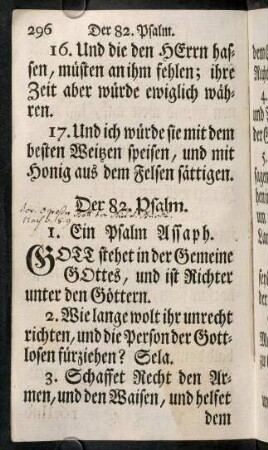 296 Der 82. Psalm.
16. Und die den HErrn has-
sen, müsten an ihm fehlen; ihre
Zeit aber würde ewiglich wäh-
ren.
17. Und ich würde sie mit dem
besten Weitzen speisen, und mit
Honig aus dem Felsen sättigen.
Der 82. Psalm.
1. Ein Psalm Assaph.
GOTT stehet in der Gemeine
GOttes, und ist Richter
unter den Göttern.
2. Wie lange wolt ihr unrecht
richten, und die Person der Gott-
losen fürziehen? Sela.
3. Schaffet Recht den Ar-
men, und den Waisen, und helfet
dem